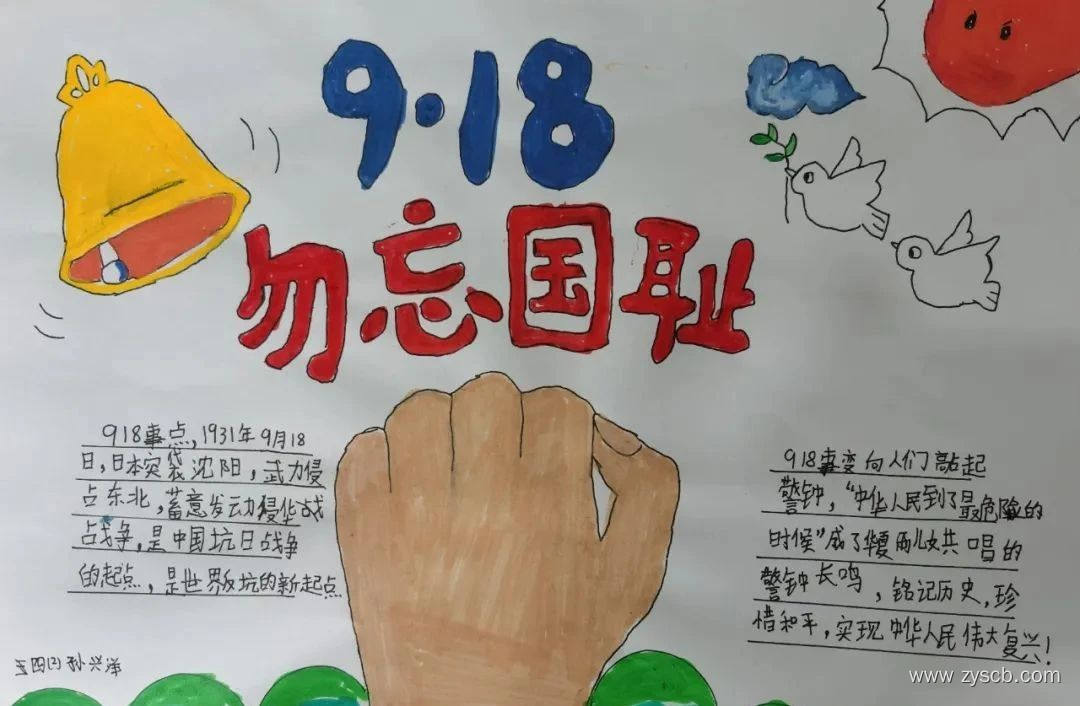 9·18
勿忘国耻
918事点,1931年9月18
日,日本突袭沈阳,武力侵
占东北,蓄意发动侵华战
占战争,是中国坑日战争
的起点,是世界反坑的新起点
918事变向人们敲起
警钟,“中华人民到了最危险的
时候”成了华夏儿女共唱的
警钟长鸣,铭记历史,珍
惜和平,实现中华人民伟大复兴!
五四(2)孙兴泽
www.zyscb.com